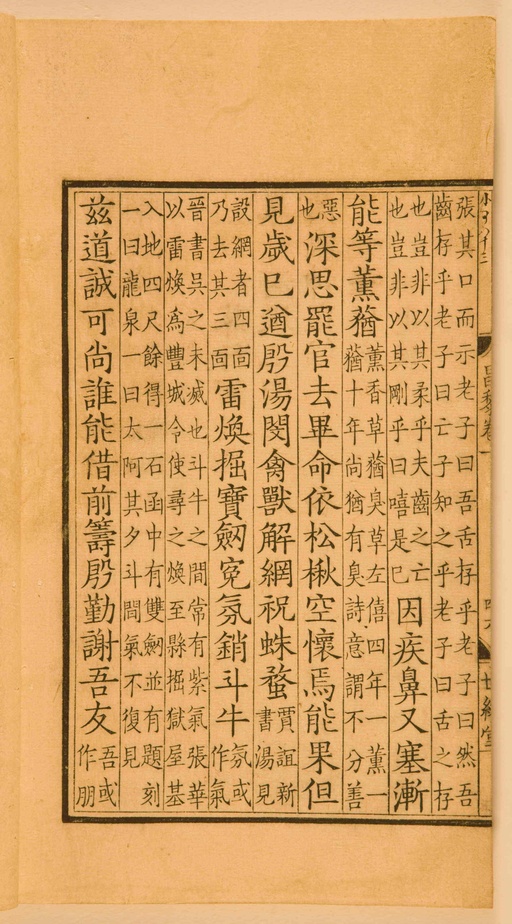 張其口而示老子曰吾舌存乎老子曰然吾
齒存乎老子曰亡子知之乎老子曰舌之存
也豈非以其柔乎夫齒之亡
也豈非以其剛乎曰嘻是已
因疾鼻又塞漸
能等薰蕕
薰香草蕕臭草左僖四年一薰一
蕕十年尚猶有臭詩意謂不分善
惡
也
深思罷官去畢命依松楸空懷焉能果但
見歲已遒殷湯閔禽獸解網祝蛛蝥
賈誼新
書湯見
設網者四面
乃去其三面
雷煥掘寶劒冤氛銷斗牛
氛或
作氣
晉書吳之未滅也斗牛之間常有紫氣張華
以雷煥爲豐城令使尋之煥至縣掘獄屋基
入地四尺餘得一石函中有雙劒並有題刻
一曰龍泉一曰太阿其夕斗間氣不復見
茲道誠可尚誰能借前籌殷勤謝吾友
吾或
作朋